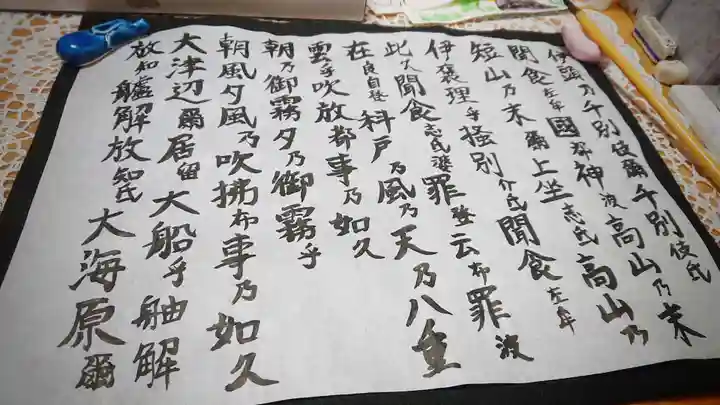 伊頭乃千別伎爾千別伎氐
聞食左牟國都神波高山乃末
短山乃末爾上坐志氐高山乃
伊褒理乎掻別介氐聞食左牟
此久聞食志氐波罪登云布罪波
在良自登科戸乃風乃天乃八重
雲乎吹放都事乃如久
朝乃御霧夕乃御霧乎
朝風夕風乃吹拂布事乃如久
大津辺爾居留大船乎舳解
放知艫解放知氐大海原爾